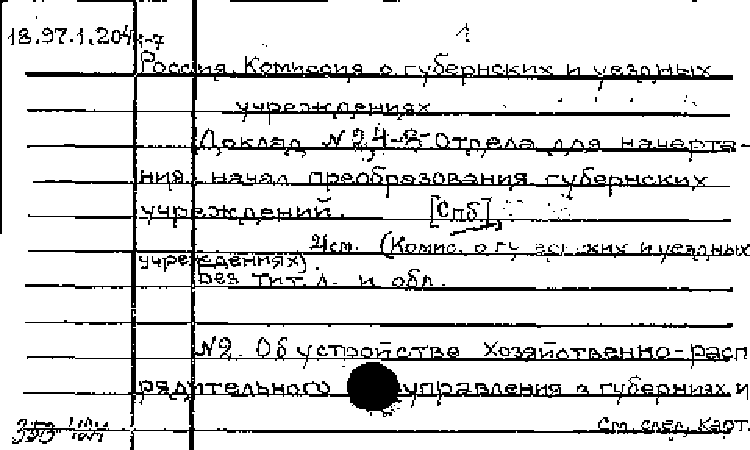 18.97.1.204
1
Россия. Комиссия о губернских и уездных
учреждениях
Доклад №2,4-8 Отдела для начерта-
ния начал преобразования губернских
учреждений. [Спб],
(Комис. о губернских и уездных
учреждениях)
Без тит. л. и обл.
№2. Об устройстве хозяйственно-расп
рядительного управления в губерниях и
См. след. карт.